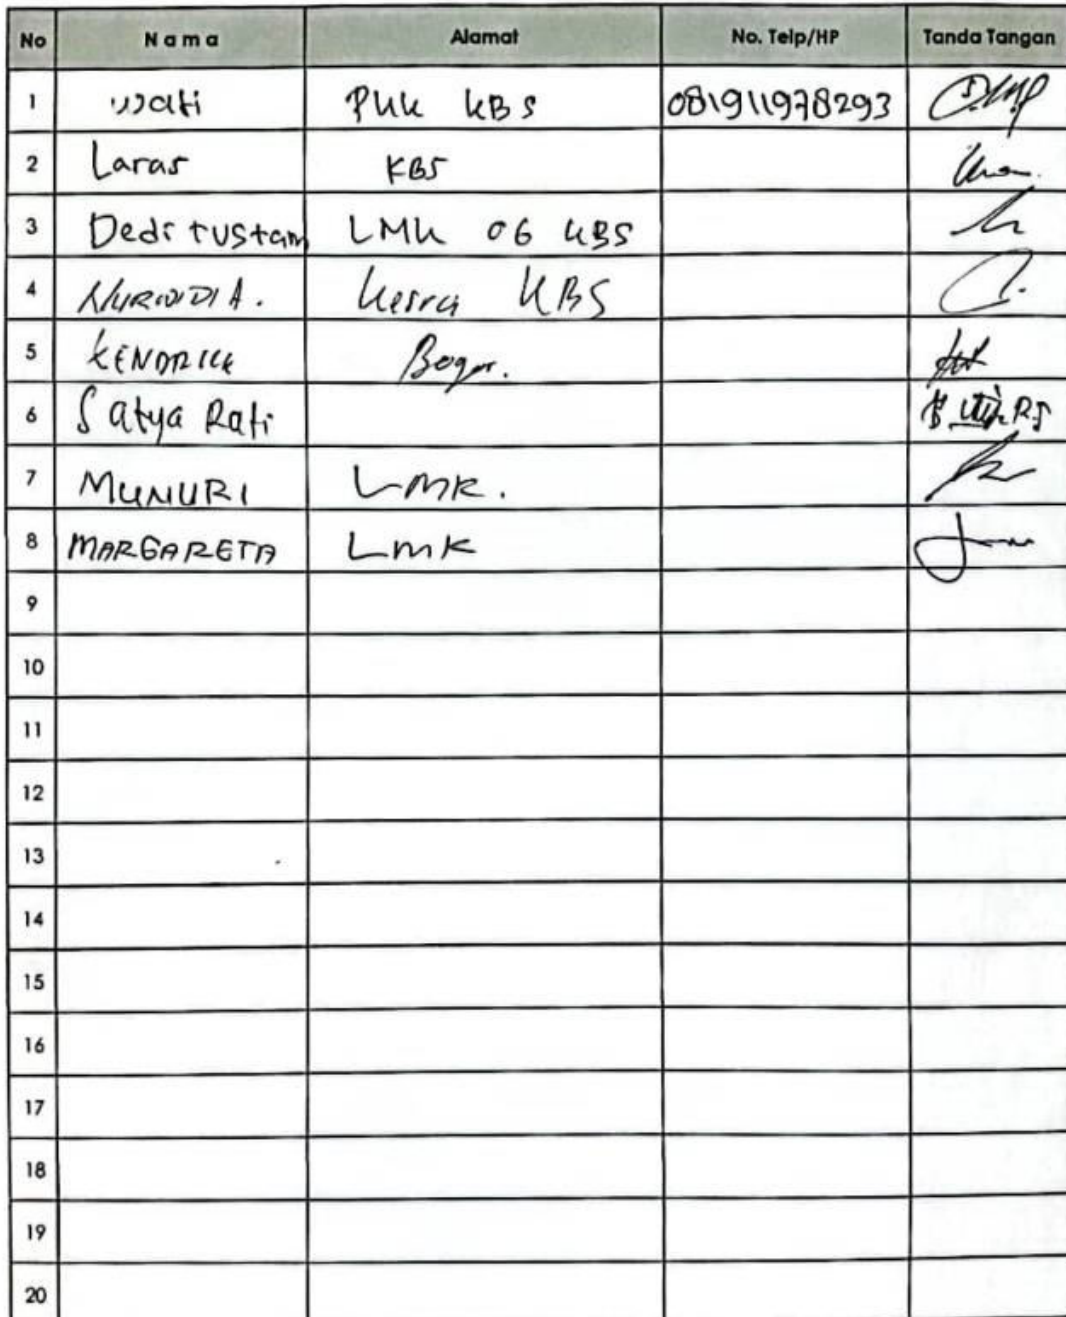 No Nama Alamat No. Telp/HP Tanda Tangan
1 Wati PKK KBS 081911978293
2 Laras KBS
3 Dedi rustam LMK 06 KBS
4 NURWIDI A. Kesra KBS
5 KENDRICK Bogor.
6 Satya Rati
7 MUNURI LMK.
8 MARGARETA LMK
9
10
11
12
13
14
15
16
17
18
19
20